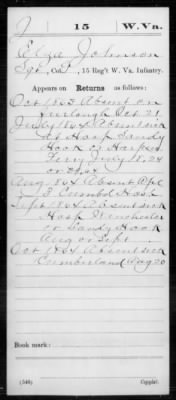 J | 15 | W. Va.
Elza Johnson
Sgt., Co. , 15 Reg't W. Va. Infantry.
Appears on Returns as follows:
Oct 1863 Absent on
furlough Oct 21
July 1864 Absent sick
at Hosp Sandy
Hook or Harpers
Ferry July 18, 24
or
Aug 1864 Absent
Cumbd Hosp
Sept 1864 Absent sick
Hosp Winchester
or Sandy Hook
Aug or Sept
Oct 1864 Absent sick
Cumberland Aug 20
Book mark:
(546)
Copyist.